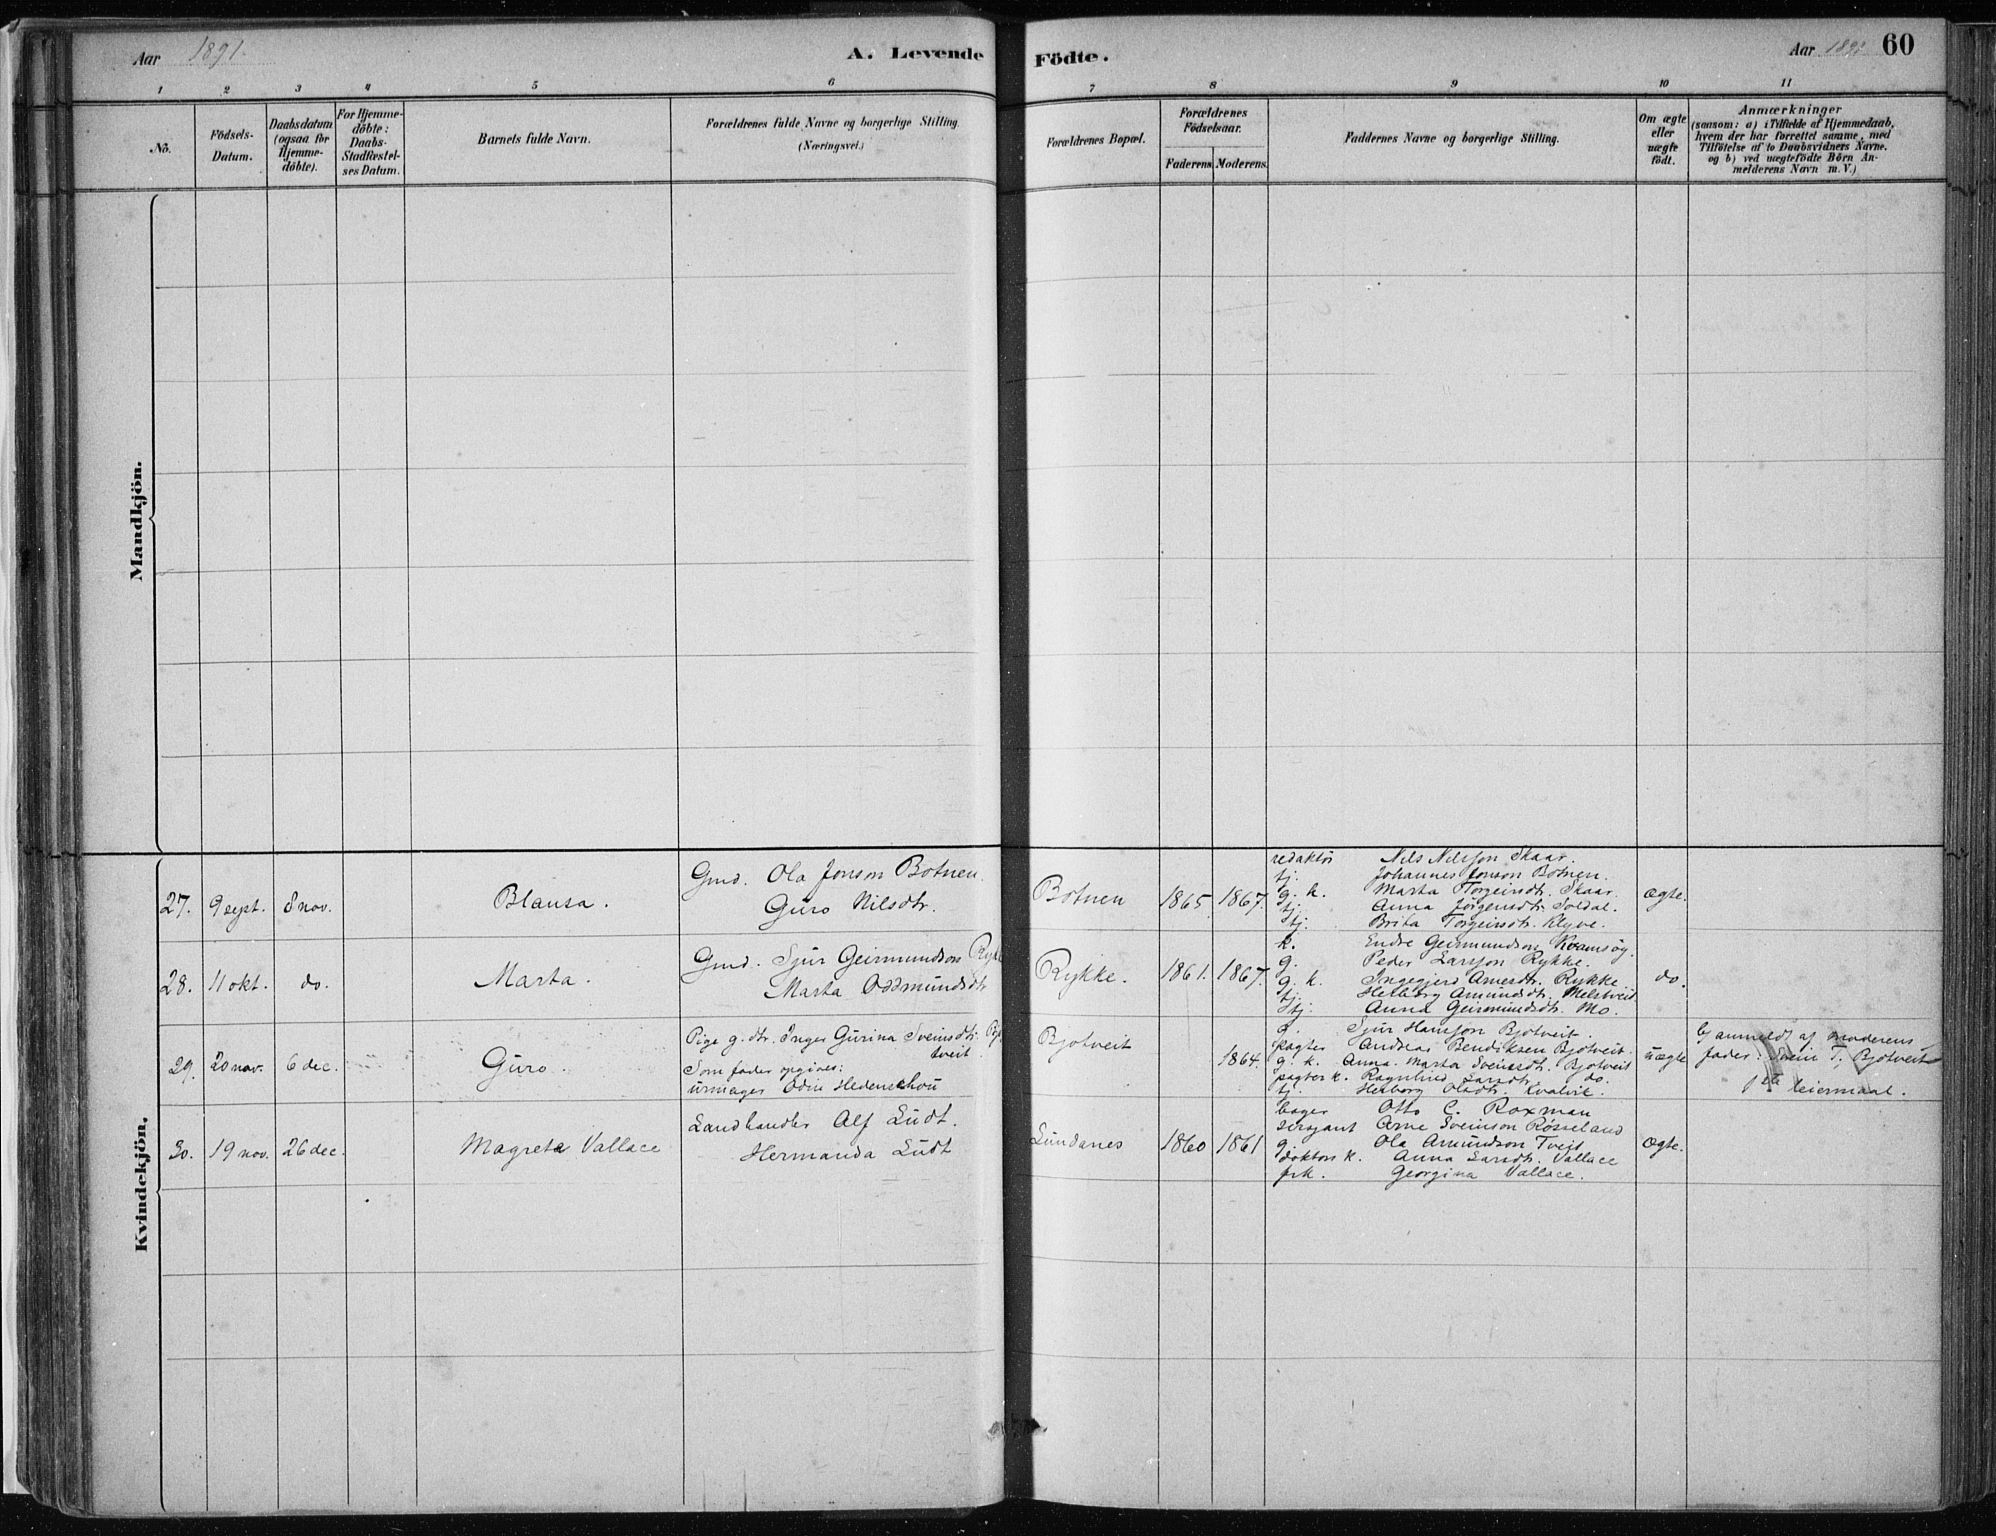 Aar 1891.
A. Levende
Födte.
Aar 60
1 2 3 4 5 6
7 8 9 10 11
No.
Födsels-
Datum.
Daabsdatum
(ogsaa for
Hjemme-
döbte).
For Hjemme-
döbte:
Daabs-
Stadfæstel-
ses Datum.
Barnets fulde Navn.
Forældrenes fulde Navne og borgerlige Stilling.
(Næringsvei.)
Forældrenes Bopæl.
Forældrenes
Födselsaar.
Faderens. Moderens.
Faddernes Navne og borgerlige Stilling.
Om ægte
eller
uægte
födt.
Anmærkninger
(saasom: a) i Tilfælde af Hjemmedaab,
hvem der har forrettet samme, med
Tilföielse af to Daabsvidners Navne.
og b) ved uægtefödte Börn An-
melderens Navn m. V.)
Mandkjön.
Kvindekjön.
27. 9 sept. 8 nov.
Blansa.
Gmd. Ola Jonson Botnen.
Guro Nilsdtr.
Botnen
1865. 1867.
redaktør Nils Nilsson Skaar.
tj. Johannes Jonson Botnen.
g. k. Marta Torgeirsdtr. Skaar.
tj. Anna Jørgensdtr. Soldal.
tj. Brita Torgeirsdtr. Klyve.
ægte.
28. 11 okt. do.
Marta.
Gmd. Sjur Geirmundson Rykke
Marta Oddmundsdtr
Rykke.
1861. 1867.
k. Endre Geirmundson Kvamsøy.
g. Peder Larsson Rykke.
g. k. Ingegjerd Arnesdtr. Rykke
tj. Herborg Amundsdtr. Melstveit
tj. Anna Geirmundsdtr. Mo.
do.
29. 20 nov. 6 dec.
Guro.
Pige g. dtr. Inger Gurina Sveinsdtr.
tveit.
Som fader opgives:
urmager Odin Hedenschou
Bjotveit
1864.
Sjur Hansson Bjotveit.
pagter Andreas Bendiksen Bjotveit.
g. k. Anna Marta Sveinsdtr. Bjotveit
pagter k. Ragnhild Larsdtr. do.
tj. Herborg Olsdtr. Kvalvik.
uægte
b) anmeldt af moderens
fader: Svein T. Bjotveit
1ste leiermaal.
30. 19 nov. 26 dec.
Magreta Vallace
Landhandler Alf Lüdt.
Hermanda Lüdt
Lundanes
1860 1861
bager Otto C. Roxman
sersjant Arne Sveinson Røsseland
g. Ola Amundson Tveit
doktors k. Anna Larsdtr. Vallace
frk. Georgina Vallace.
ægte.